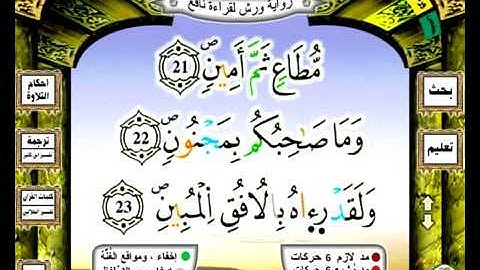 رواية ورش لقراءة نافع
مُّطَاعٍ ثَمَّ أَمِينٍ 21
وَمَا صَاحِبُكُم بِمَجْنُونٍ 22
وَلَقَدْ رِءَاهُ بِالُافُقِ اِلْمُبِينِ 23
أحكام
التلاوة
ترجمة
كلمات القرآن
بحث
تعليم
مد لازم 6 حركات
إخفاء، ومواقع الغُنَّة